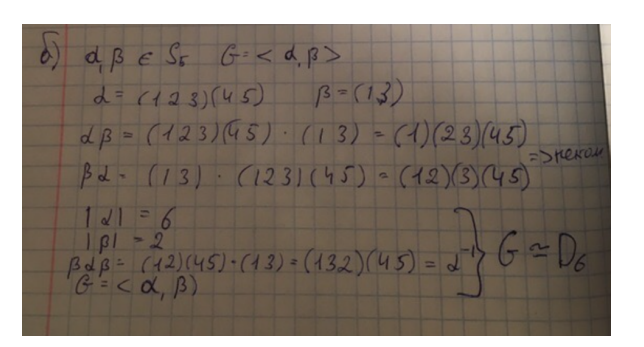 б) α, β ∈ S₅ G = <α, β>
α = (123)(45) β = (13)
αβ = (123)(45) · (13) = (1)(23)(45)
βα = (13) · (123)(45) = (12)(3)(45) => неком
|α| = 6
|β| = 2
βαβ = (12)(45) · (13) = (132)(45) = α⁻¹ } G ≃ D₆
G = <α, β>